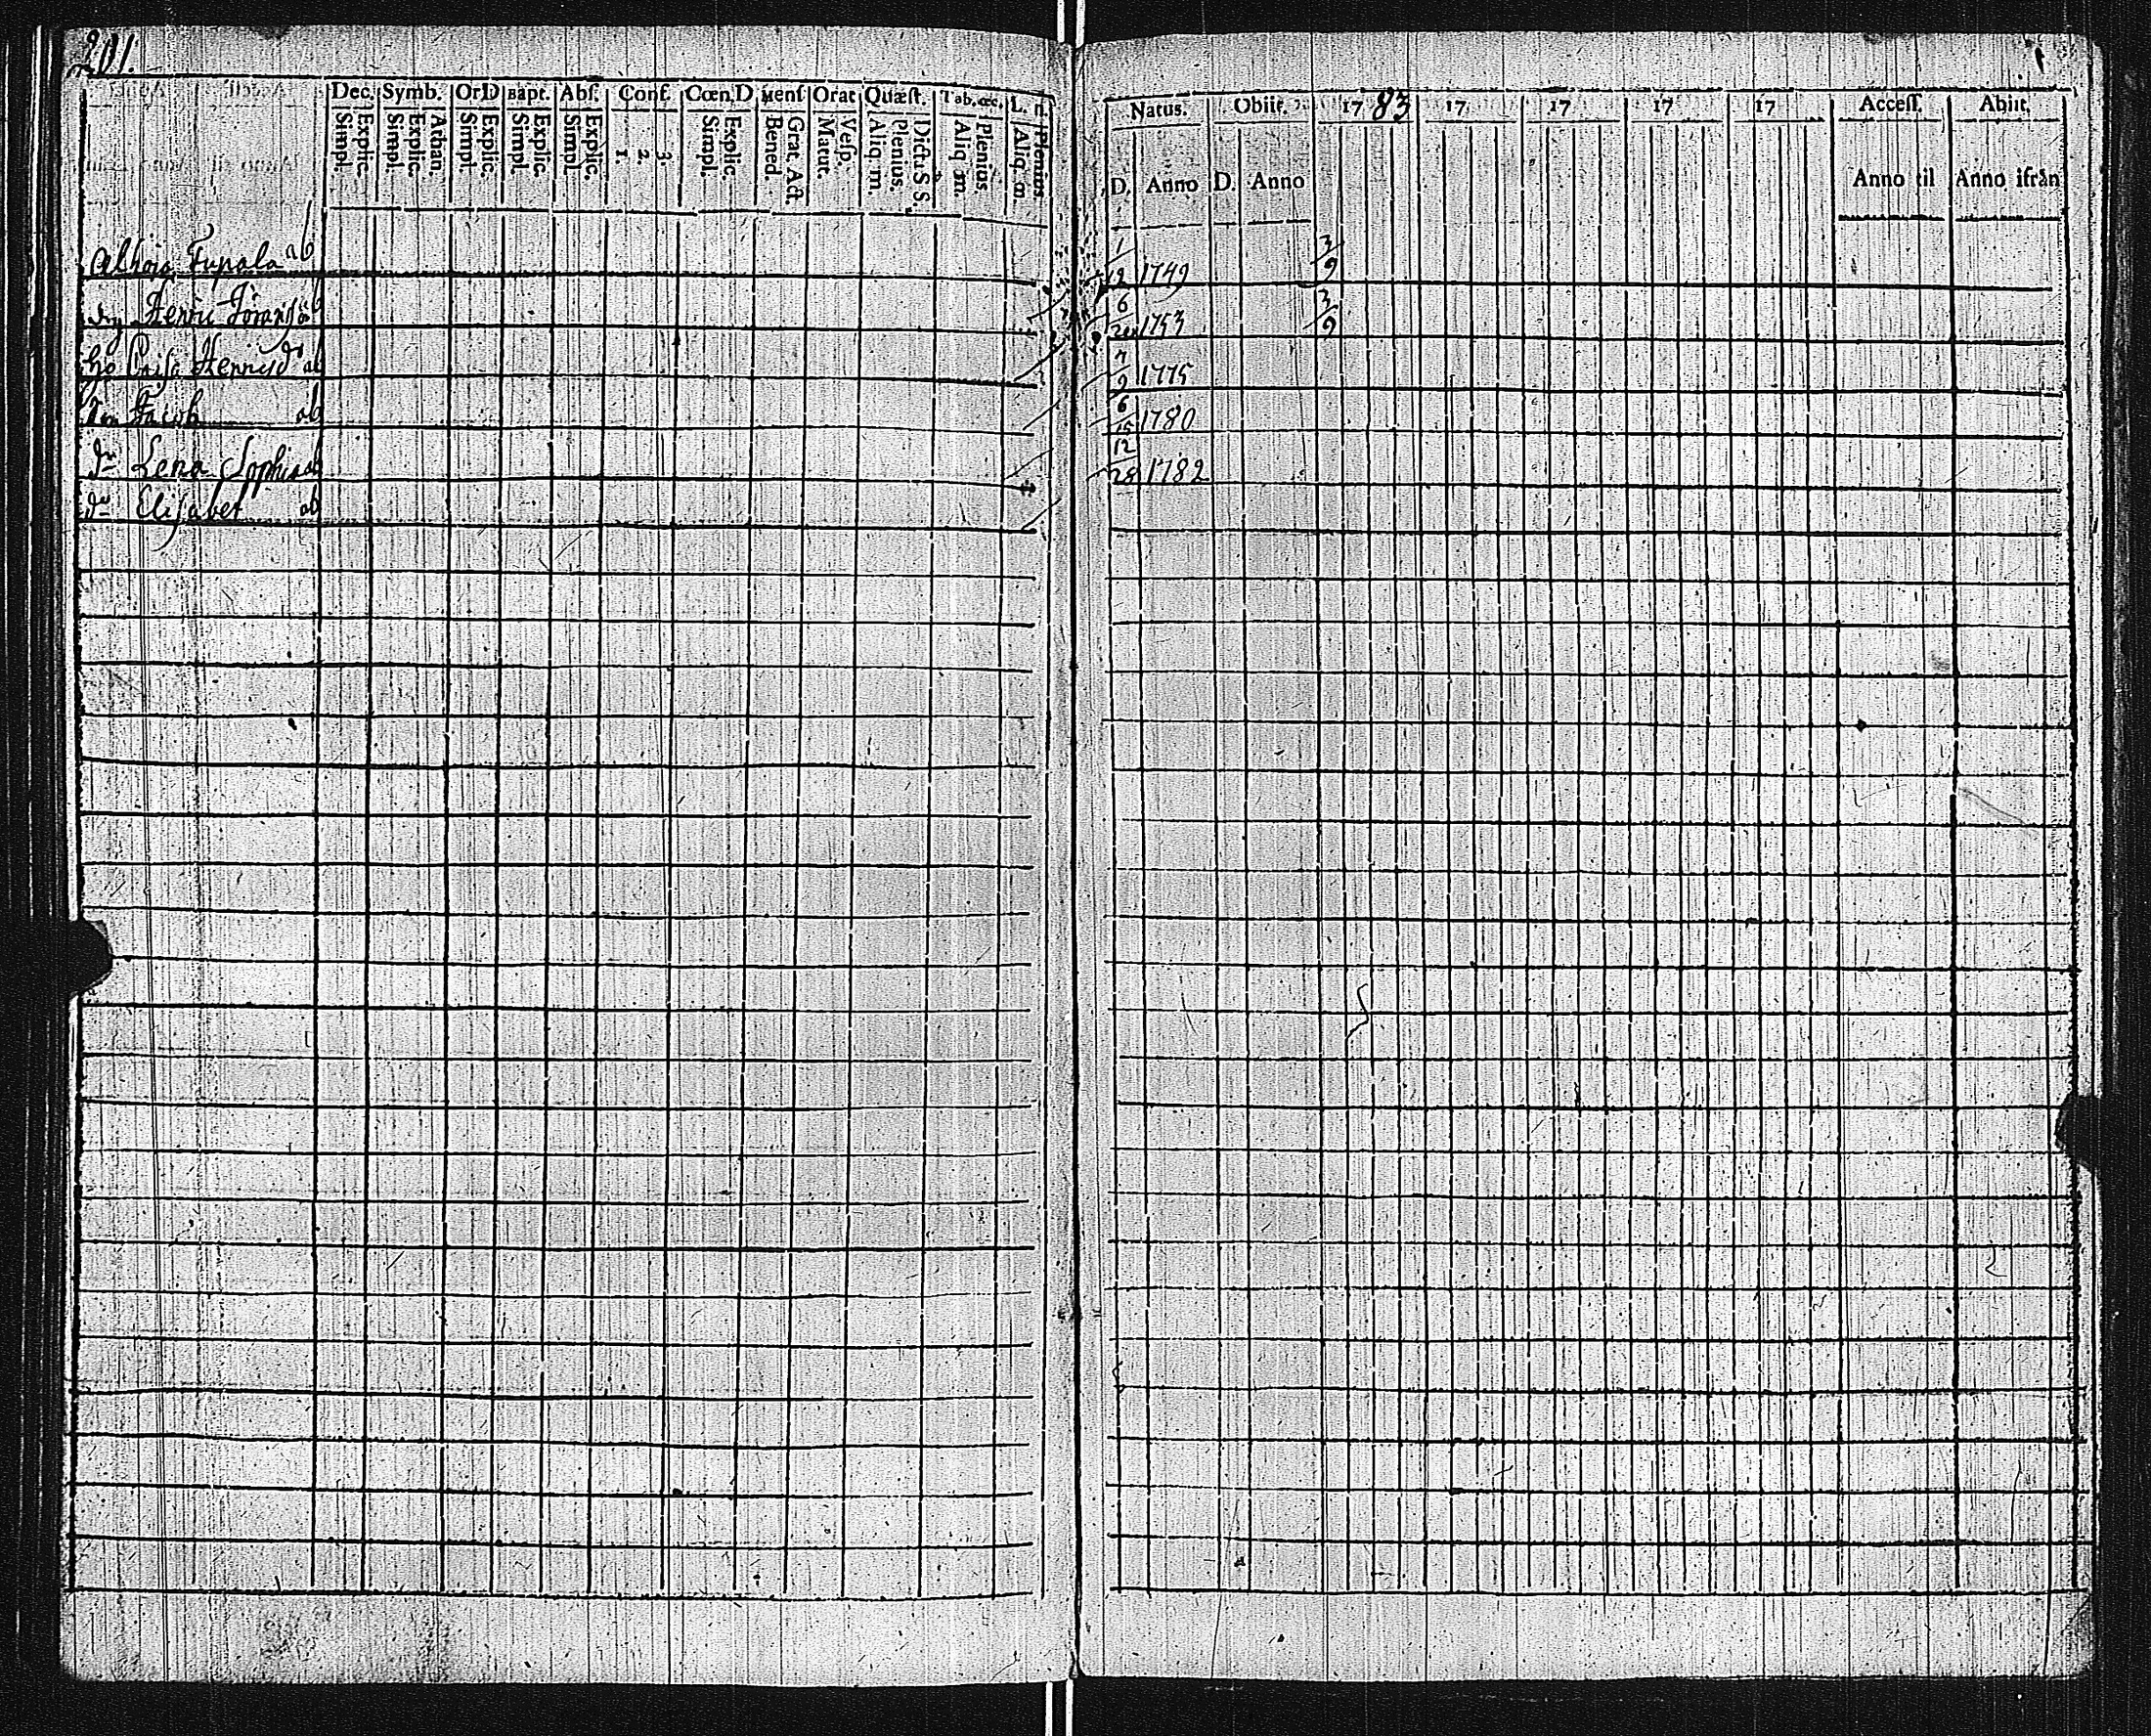 201.
Dec. Symb. Or.D Bapt. Abſ. Conf. Cœn.D Menſ Orat Quæſt. Tab. œc. L. n
Simpl. Explic. Simpl. Explic. Athan. Simpl. Explic. Simpl. Explic. Simpl. Explic. 1. 2. 3. Simpl. Explic. Bened. Grat. Act. Matut. Veſp. Aliq. m. Plenius. Dicta S.S. Aliq. m. Plenius Aliq. m. Plenius
Natus. Obiit. 1783 17 17 17 17 Acceſſ. Abiit.
D. Anno D. Anno Anno til Anno ifrån
ab 1/12 1749 3/9
Henric ab 6 1753 3/9
Henricsd ab 7/9 1775
Jacob ab 6/15 1780
Lena Sophia ab 12/28 1782
Elisabet ab